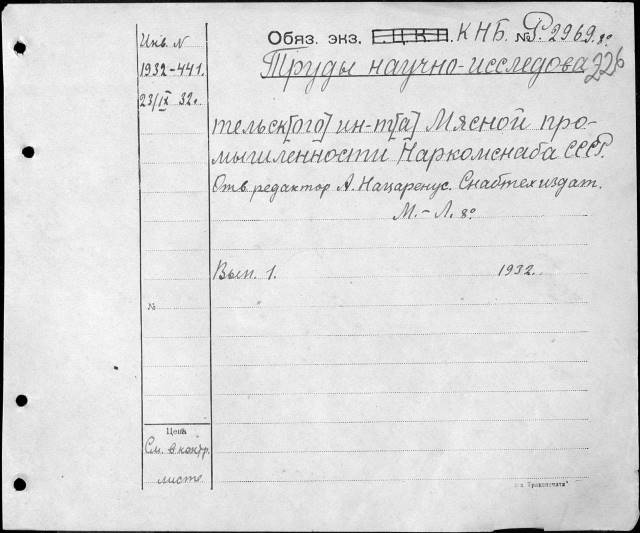 Инв. N
1932-441.
23/IX 32.
Обяз. экз. Г.Ц.К.П. КНБ. № Р. 2969.8°
Труды научно-исследова
226
тельск[ого] ин-т[а] Мясной про-
мышленности Наркомснаба СССР.
Отв. редактор А. Нацаренус. Снабтехиздат.
М.-Л. 8°
Вып. 1. 1932.
№
Цена
См. в контр.
листе